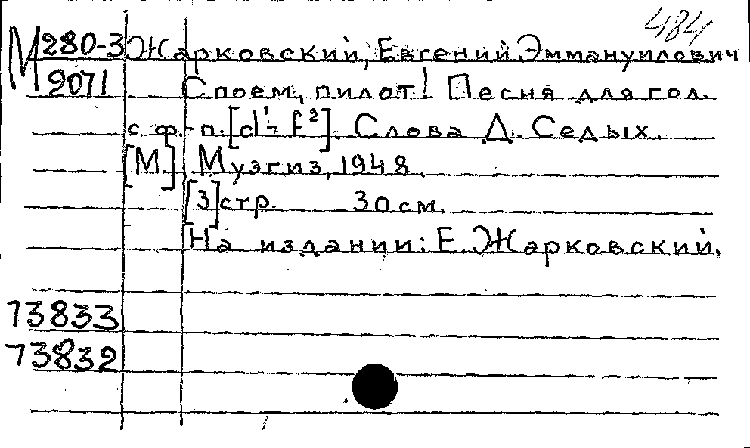 484
М 280-3 Жарковский, Евгений Эммануилович
2071 Споем, пилот! Песня для гол.
с ф-п. [d¹-f²]. Слова Д. Седых.
[М.] Музгиз, 1948.
[3] стр. 30 см.
На издании: Е. Жарковский.
73833
73832